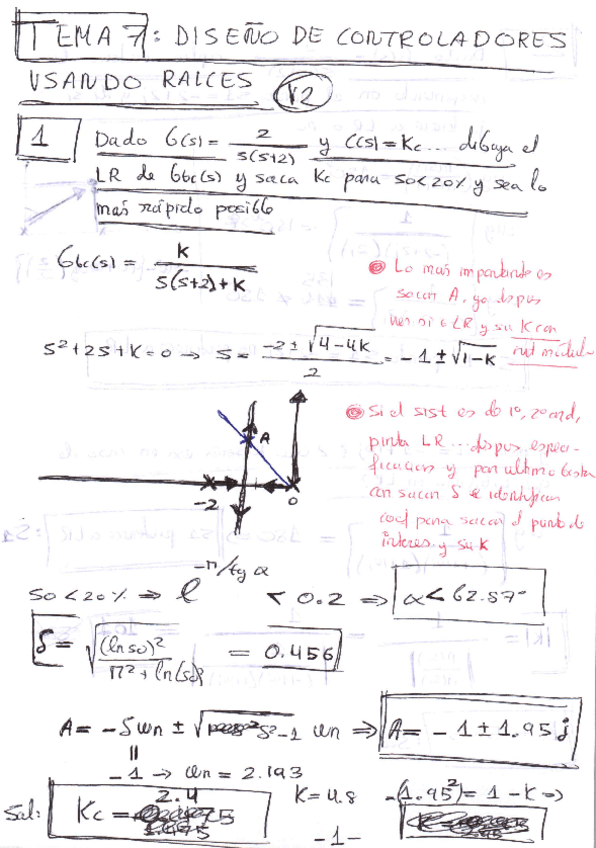 TEMA 7: DISEÑO DE CONTROLADORES
USANDO RAICES V2
1 Dado G(s) = 2/s(s+2) y C(s) = Kc... dibuja el
LR de Gbc(s) y saca Kc para SO<20% y sea lo
mas rápido posibb
Gbc(s) = K/s(s+2)+K
Lo mas importante es
sacar A, ya despus
LR y su K con
s²+2s+K=0 → s = -2±√4-4K/2 = -1±√1-K
Si el sist es de 1º, 2º ord,
pinta LR... despus especi-
ficacion y por ultimo basta
con sacar S e identificar
coef para sacar el punto de
interes y su K
A
-2
0
SO<20% ⇒ e^-π/tg α < 0.2 ⇒ α<62.87º
δ = √(ln so)²/π²+ln(so)² = 0.456
A = -δωn ± √δ²-1 ωn ⇒ A = -1±1.95j
-1 → ωn = 2.193
Sol: Kc = 2.4
K=4.8
-(1.95²) = 1-K ⇒
-1-